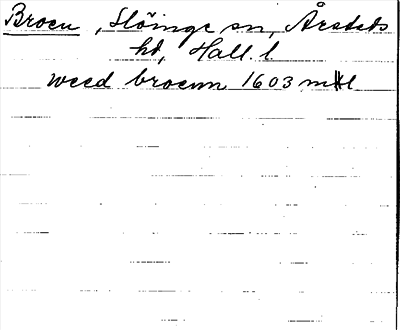 Broen, Slöinge sn, Årstads
hd, Hall. l.
weed broenn 1603 mtl